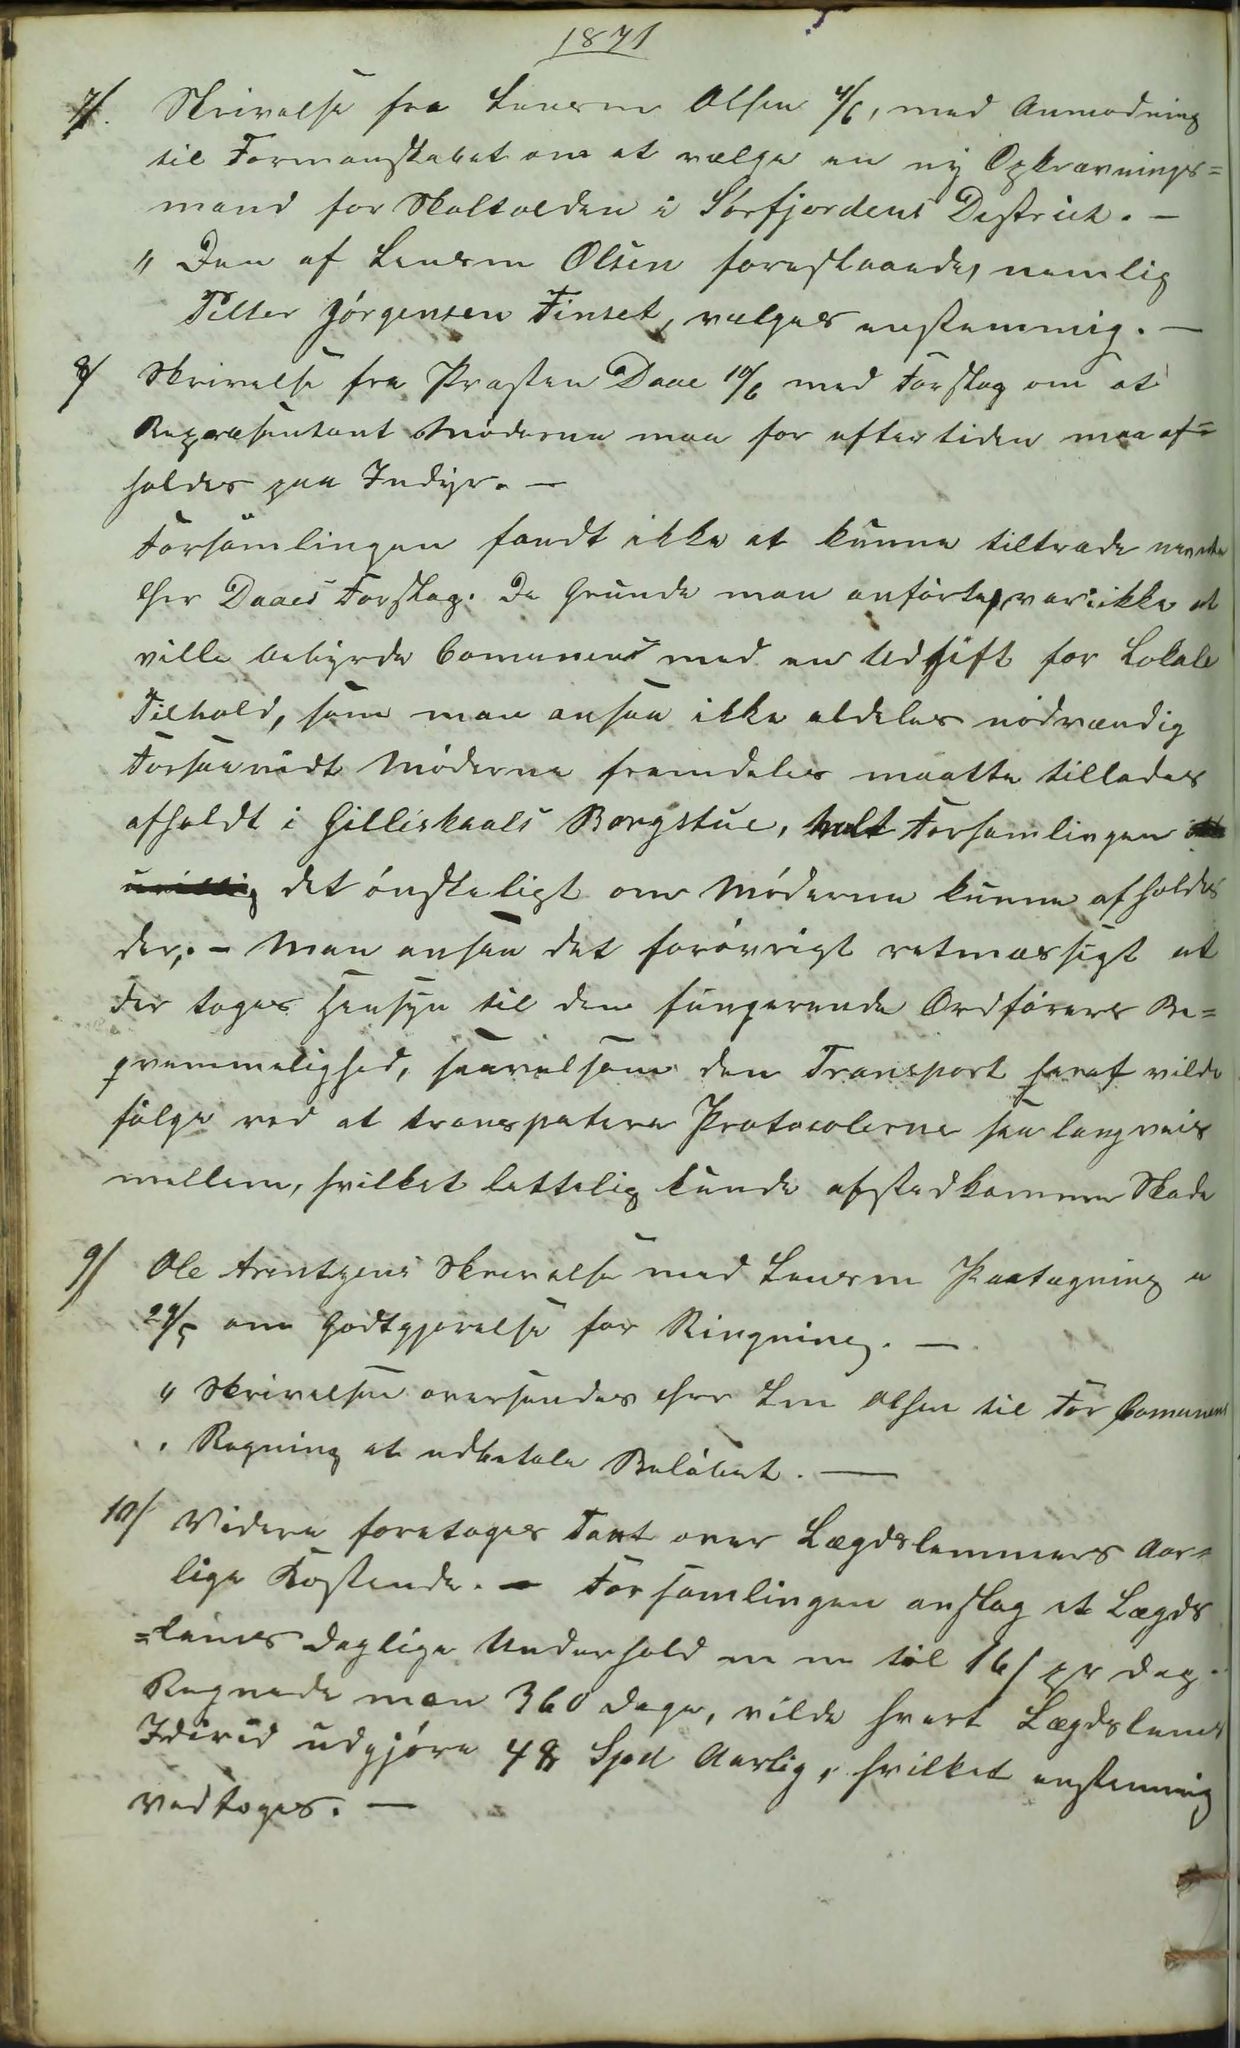 1871
7/. Skrivelse fra Lensm Olsen 4/6, med Anmodning
til Formanskabet om at vælge en ny Opkrævnings=
mand for Skoltolden i Sørfjordens Destrict. —
" Den af Lensm Olsen foreslaaede, nemlig
Petter Jørgensen Finset, vælges enstemmig. —
8/ Skrivelse fra Præsten Daae 10/6 med Forslag om at
Repræsentant Møderne maa for eftertiden maa af=
holdes paa Indyr. —
Forsamlingen fandt ikke at kunne tiltræde nevnte
Hr Daaes Forslag. De Grunde man anførte, var ikke at
ville bebyrde Comunens med en Udgift for Lokale
Tilhold, som man ansaa ikke aldeles nødvændig
Forsaavidt Møderne fremdeles maatte tillades
afholdt i Gilleskaals Borgstue, holt Forsamlingen
det ønskeligt om Møderne kunne afholdes
der. - Man ansaa det forøvrigt retmæssigt at
der toges Hensyn til den fungerende Ordførers Be=
qvemmelighed, saavelsom den Transport heraf vilde
følge ved at transpotere Protocolerne saa langveis
mellem, hvilket lettelig kunde afstedkomme Skade
9/ Ole Arentzens Skrivelse med Lensm Paategning a
29/5 om Godtgjørelse for Ringning. —
" Skrivelsen oversendes Hrr Lm Olsen til for Comunens
Regning at udbetale Beløbet. —
10/ Videre foretoges Taxt over Lægdslemmers Aar=
lige Kostende. — Forsamlingen anslog et Lægds
=lems daglige Underhold til 16/ pr dag.
Regnede man 360 Dage, vilde hvert Lægdslems
Idivid udgjøre 48 Spd Aarlig, hvilket enstemmig
vedtoges. —